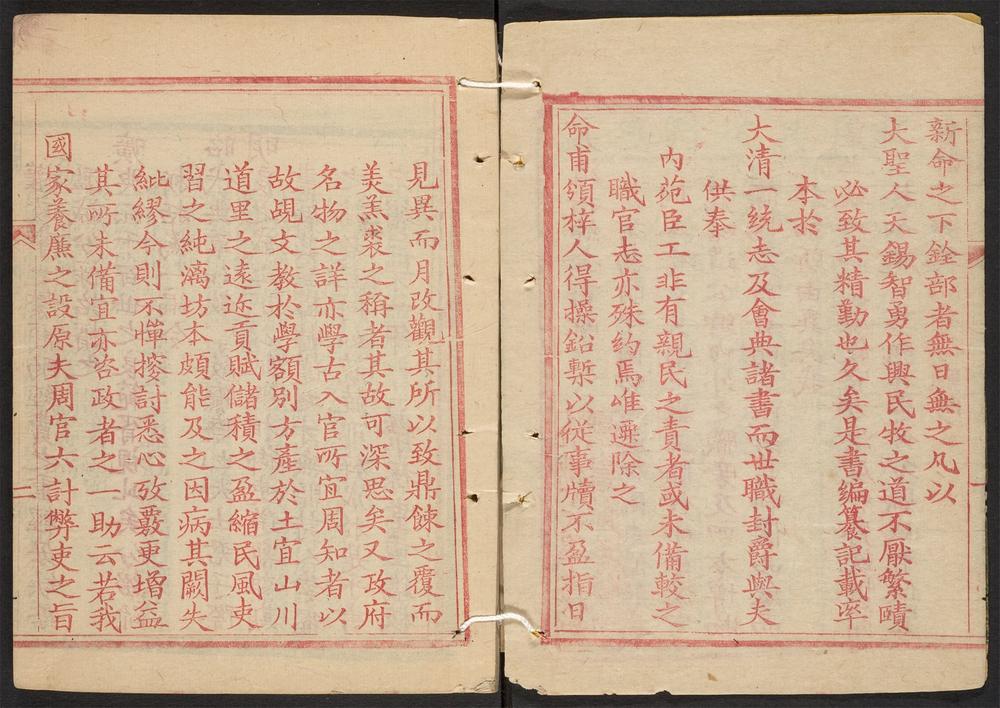 新命之下銓部者無日無之凡以
大聖人天錫智勇作興民牧之道不厭繁賾
必致其精勤也久矣是書編纂記載率
本於
大清一統志及會典諸書而世職封爵與夫
供奉
內苑臣工非有親民之責者或未備較之
職官志亦殊約焉唯遷除之
命甫頒梓人得操鉛槧以從事牘不盈指日
見異而月改觀其所以致鼎餗之覆而
羙羔裘之稱者其故可深思矣又攷府
名物之詳亦學古入官所宜周知者以
故覘文教於學額別方產於土宜山川
道里之遠近貢賦儲積之盈縮民風吏
習之純漓坊本頗能及之因病其闕失
紕繆今則不憚摉討悉心攷覈更增益
其所未備宜亦咨政者之一助云若我
國家養廉之設原夫周官六計弊吏之旨
二